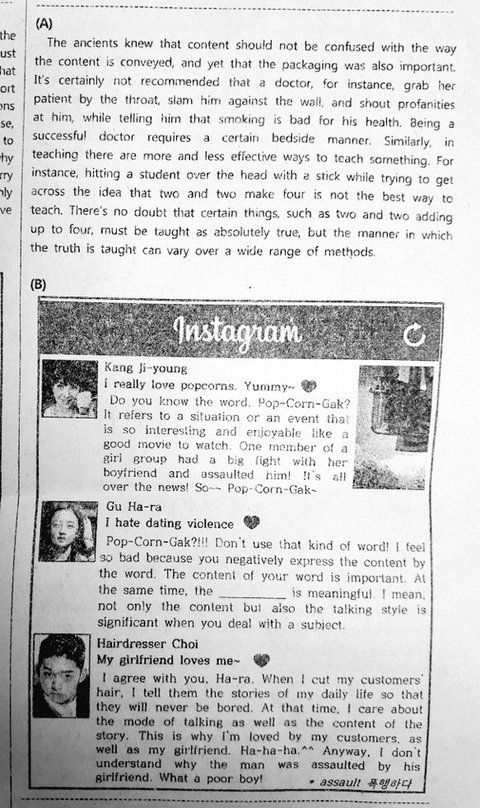 the
ust
hat
ort
ons
se,
to
hy
rry
nly
ve
(A)
The ancients knew that content should not be confused with the way
the content is conveyed, and yet that the packaging was also important.
It's certainly not recommended that a doctor, for instance, grab her
patient by the throat, slam him against the wall, and shout profanities
at him, while telling him that smoking is bad for his health. Being a
successful doctor requires a certain bedside manner. Similarly, in
teaching there are more and less effective ways to teach something. For
instance, hitting a student over the head with a stick while trying to get
across the idea that two and two make four is not the best way to
teach. There's no doubt that certain things, such as two and two adding
up to four, must be taught as absolutely true, but the manner in which
the truth is taught can vary over a wide range of methods.
(B)
Instagram
Kang Ji-young
I really love popcorns. Yummy~
Do you know the word, Pop-Corn-Gak?
It refers to a situation or an event that
is so interesting and enjoyable like a
good movie to watch. One member of a
girl group had a big fight with her
boyfriend and assaulted him! It's all
over the news! So~~ Pop-Corn-Gak~
Gu Ha-ra
I hate dating violence
Pop-Corn-Gak?!!! Don't use that kind of word! I feel
so bad because you negatively express the content by
the word. The content of your word is important. At
the same time, the __________ is meaningful. I mean,
not only the content but also the talking style is
significant when you deal with a subject.
Hairdresser Choi
My girlfriend loves me~
I agree with you, Ha-ra. When I cut my customers'
hair, I tell them the stories of my daily life so that
they will never be bored. At that time, I care about
the mode of talking as well as the content of the
story. This is why I'm loved by my customers, as
well as my girlfriend. Ha-ha-ha.^^ Anyway, I don't
understand why the man was assaulted by his
girlfriend. What a poor boy!
* assault 폭행하다